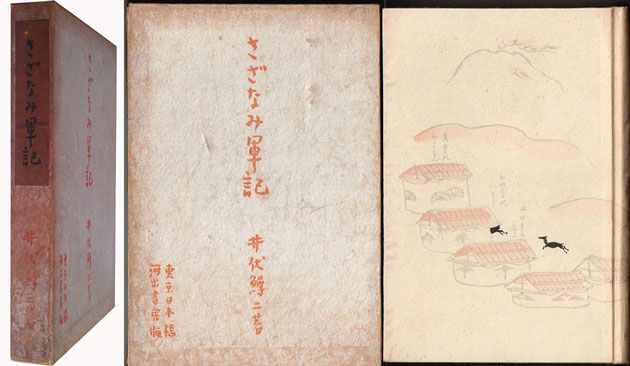 さざなみ軍記
井伏鱒二著
さざなみ軍記
井伏鱒二著
東京日本橋
河出書房版
さざなみ軍記
井伏鱒二著
東京日本橋
河出書房版